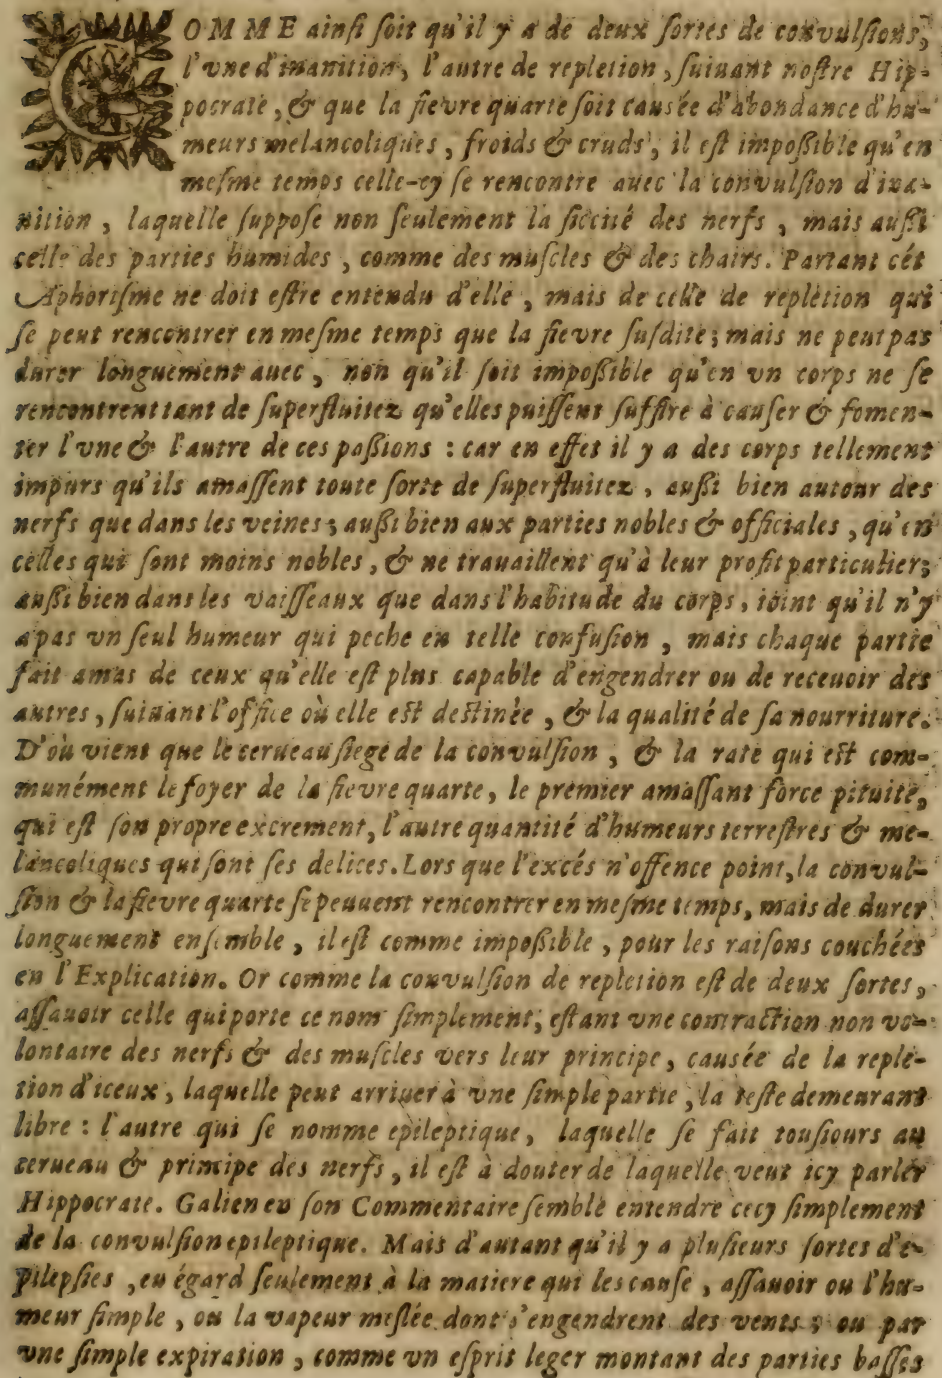 COMME ainſi ſoit qu'il y a de deux ſortes de convulſions,
l'vne d'inanition, l'autre de repletion, ſuiuant noſtre Hip-
pocrate, & que la fievre quarte ſoit causée d'abondance d'hu-
meurs melancoliques, froids & cruds, il eſt impoßible qu'en
meſme temps celle-cy ſe rencontre auec la convulſion d'ina-
nition, laquelle ſuppoſe non ſeulement la ſiccité des nerfs, mais außi
celle des parties humides, comme des muſcles & des chairs. Partant cét
Aphoriſme ne doit eſtre entendu d'elle, mais de celle de replétion qui
ſe peut rencontrer en meſme temps que la fievre ſuſdite; mais ne peut pas
durer longuement auec, non qu'il ſoit impoßible qu'en vn corps ne ſe
rencontrent tant de ſuperfluitez qu'elles puiſſent ſuffire à cauſer & fomen-
ter l'vne & l'autre de ces paßions : car en effet il y a des corps tellement
impurs qu'ils amaſſent toute ſorte de ſuperfluitez, außi bien autour des
nerfs que dans les veines; außi bien aux parties nobles & officiales, qu'en
celles qui ſont moins nobles, & ne trauaillent qu'à leur profit particulier;
außi bien dans les vaiſſeaux que dans l'habitude du corps, ioint qu'il n'y
a pas vn ſeul humeur qui peche en telle confuſion, mais chaque partie
fait amas de ceux qu'elle eſt plus capable d'engendrer ou de receuoir des
autres, ſuiuant l'office où elle eſt deſtinée, & la qualité de ſa nourriture.
D'où vient que le cerueau ſiege de la convulſion, & la rate qui eſt com-
munément le foyer de la fievre quarte, le premier amaſſant force pituite,
qui eſt ſon propre excrement, l'autre quantité d'humeurs terreſtres & me-
lancoliques qui ſont ſes delices. Lors que l'excés n'offence point, la convul-
ſion & la fievre quarte ſe peuuent rencontrer en meſme temps, mais de durer
longuement enſemble, il eſt comme impoßible, pour les raiſons couchées
en l'Explication. Or comme la convulſion de repletion eſt de deux ſortes,
aſſauoir celle qui porte ce nom ſimplement, eſtant vne contraction non vo-
lontaire des nerfs & des muſcles vers leur principe, causée de la replé-
tion d'iceux, laquelle peut arriuer à vne ſimple partie, la teſte demeurant
libre : l'autre qui ſe nomme epileptique, laquelle ſe fait touſiours au
cerueau & principe des nerfs, il eſt à douter de laquelle veut icy parler
Hippocrate. Galien en ſon Commentaire ſemble entendre cecy ſimplement
de la convulſion epileptique. Mais d'autant qu'il y a pluſieurs ſortes d'e-
pilepſies, eu égard ſeulement à la matiere qui les cauſe, aſſauoir ou l'hu-
meur ſimple, ou la vapeur meſlée dont s'engendrent des vents; ou par
vne ſimple expiration, comme vn eſprit leger montant des parties baſſes